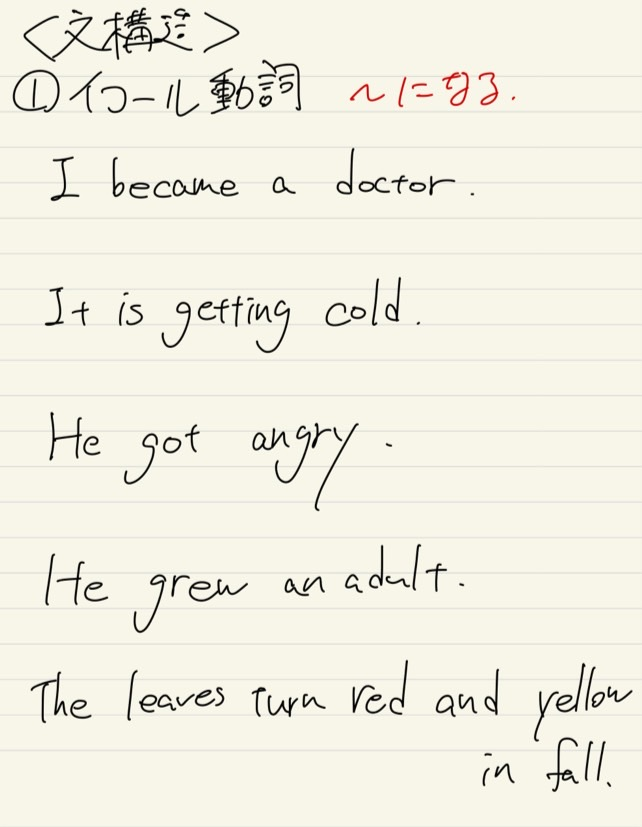 <文構造>
①イコール動詞 ～になる.
I became a doctor.
It is getting cold.
He got angry.
He grew an adult.
The leaves turn red and yellow
in fall.